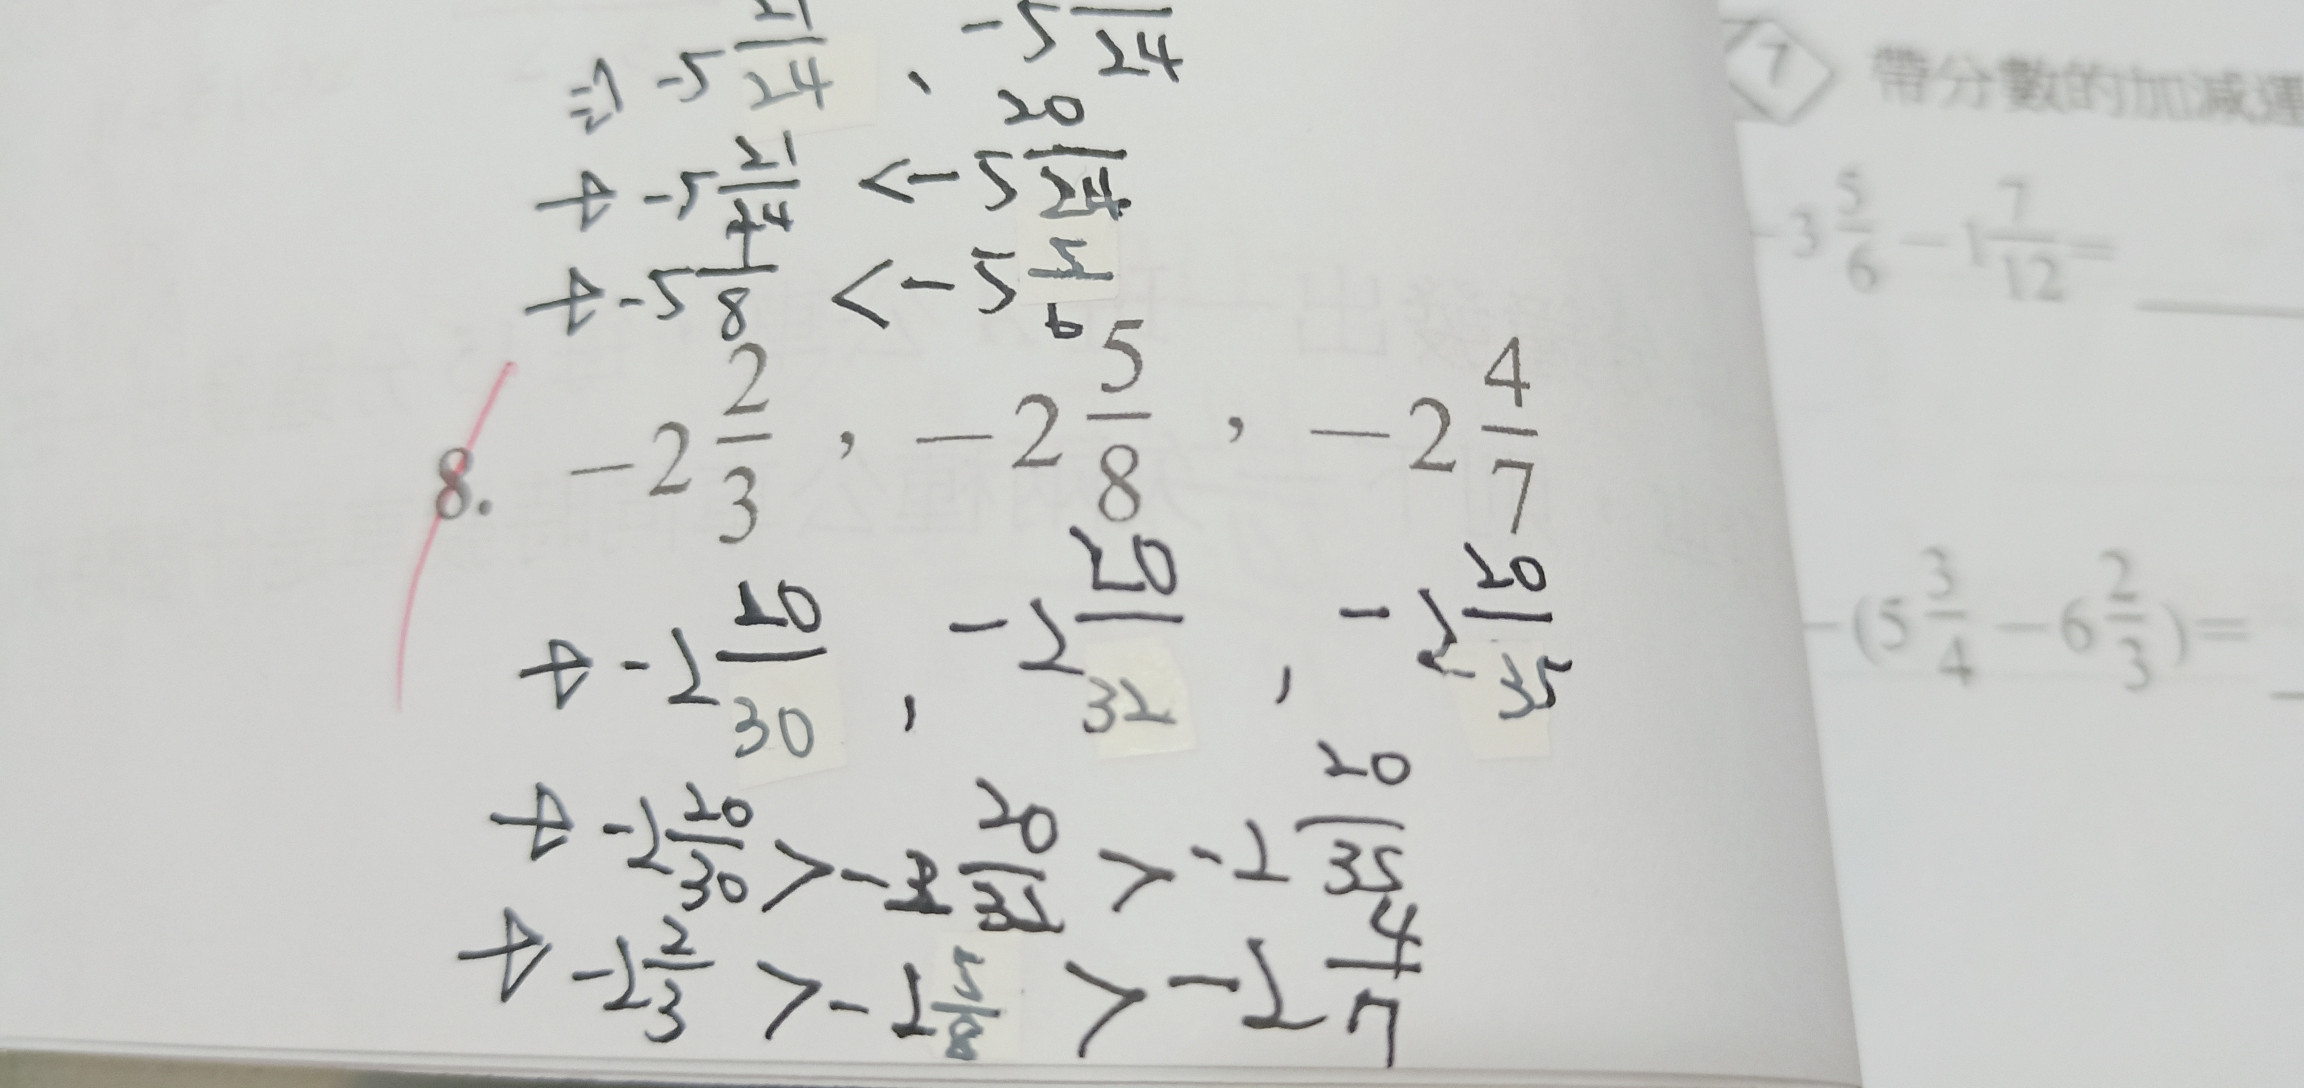 ⇒ -5 21/24 , -5 20/24
→ -5 21/24 < -5 20/24
→ -5 7/8 < -5 5/6
8. -2 2/3 , -2 5/8 , -2 4/7
→ -2 20/30 , -2 20/32 , -2 20/35
→ -2 20/30 > -2 20/32 > -2 20/35
→ -2 2/3 > -2 5/8 > -2 4/7
7 帶分數的加減運
-3 5/6 - 1 7/12 =
-(5 3/4 - 6 2/3) =